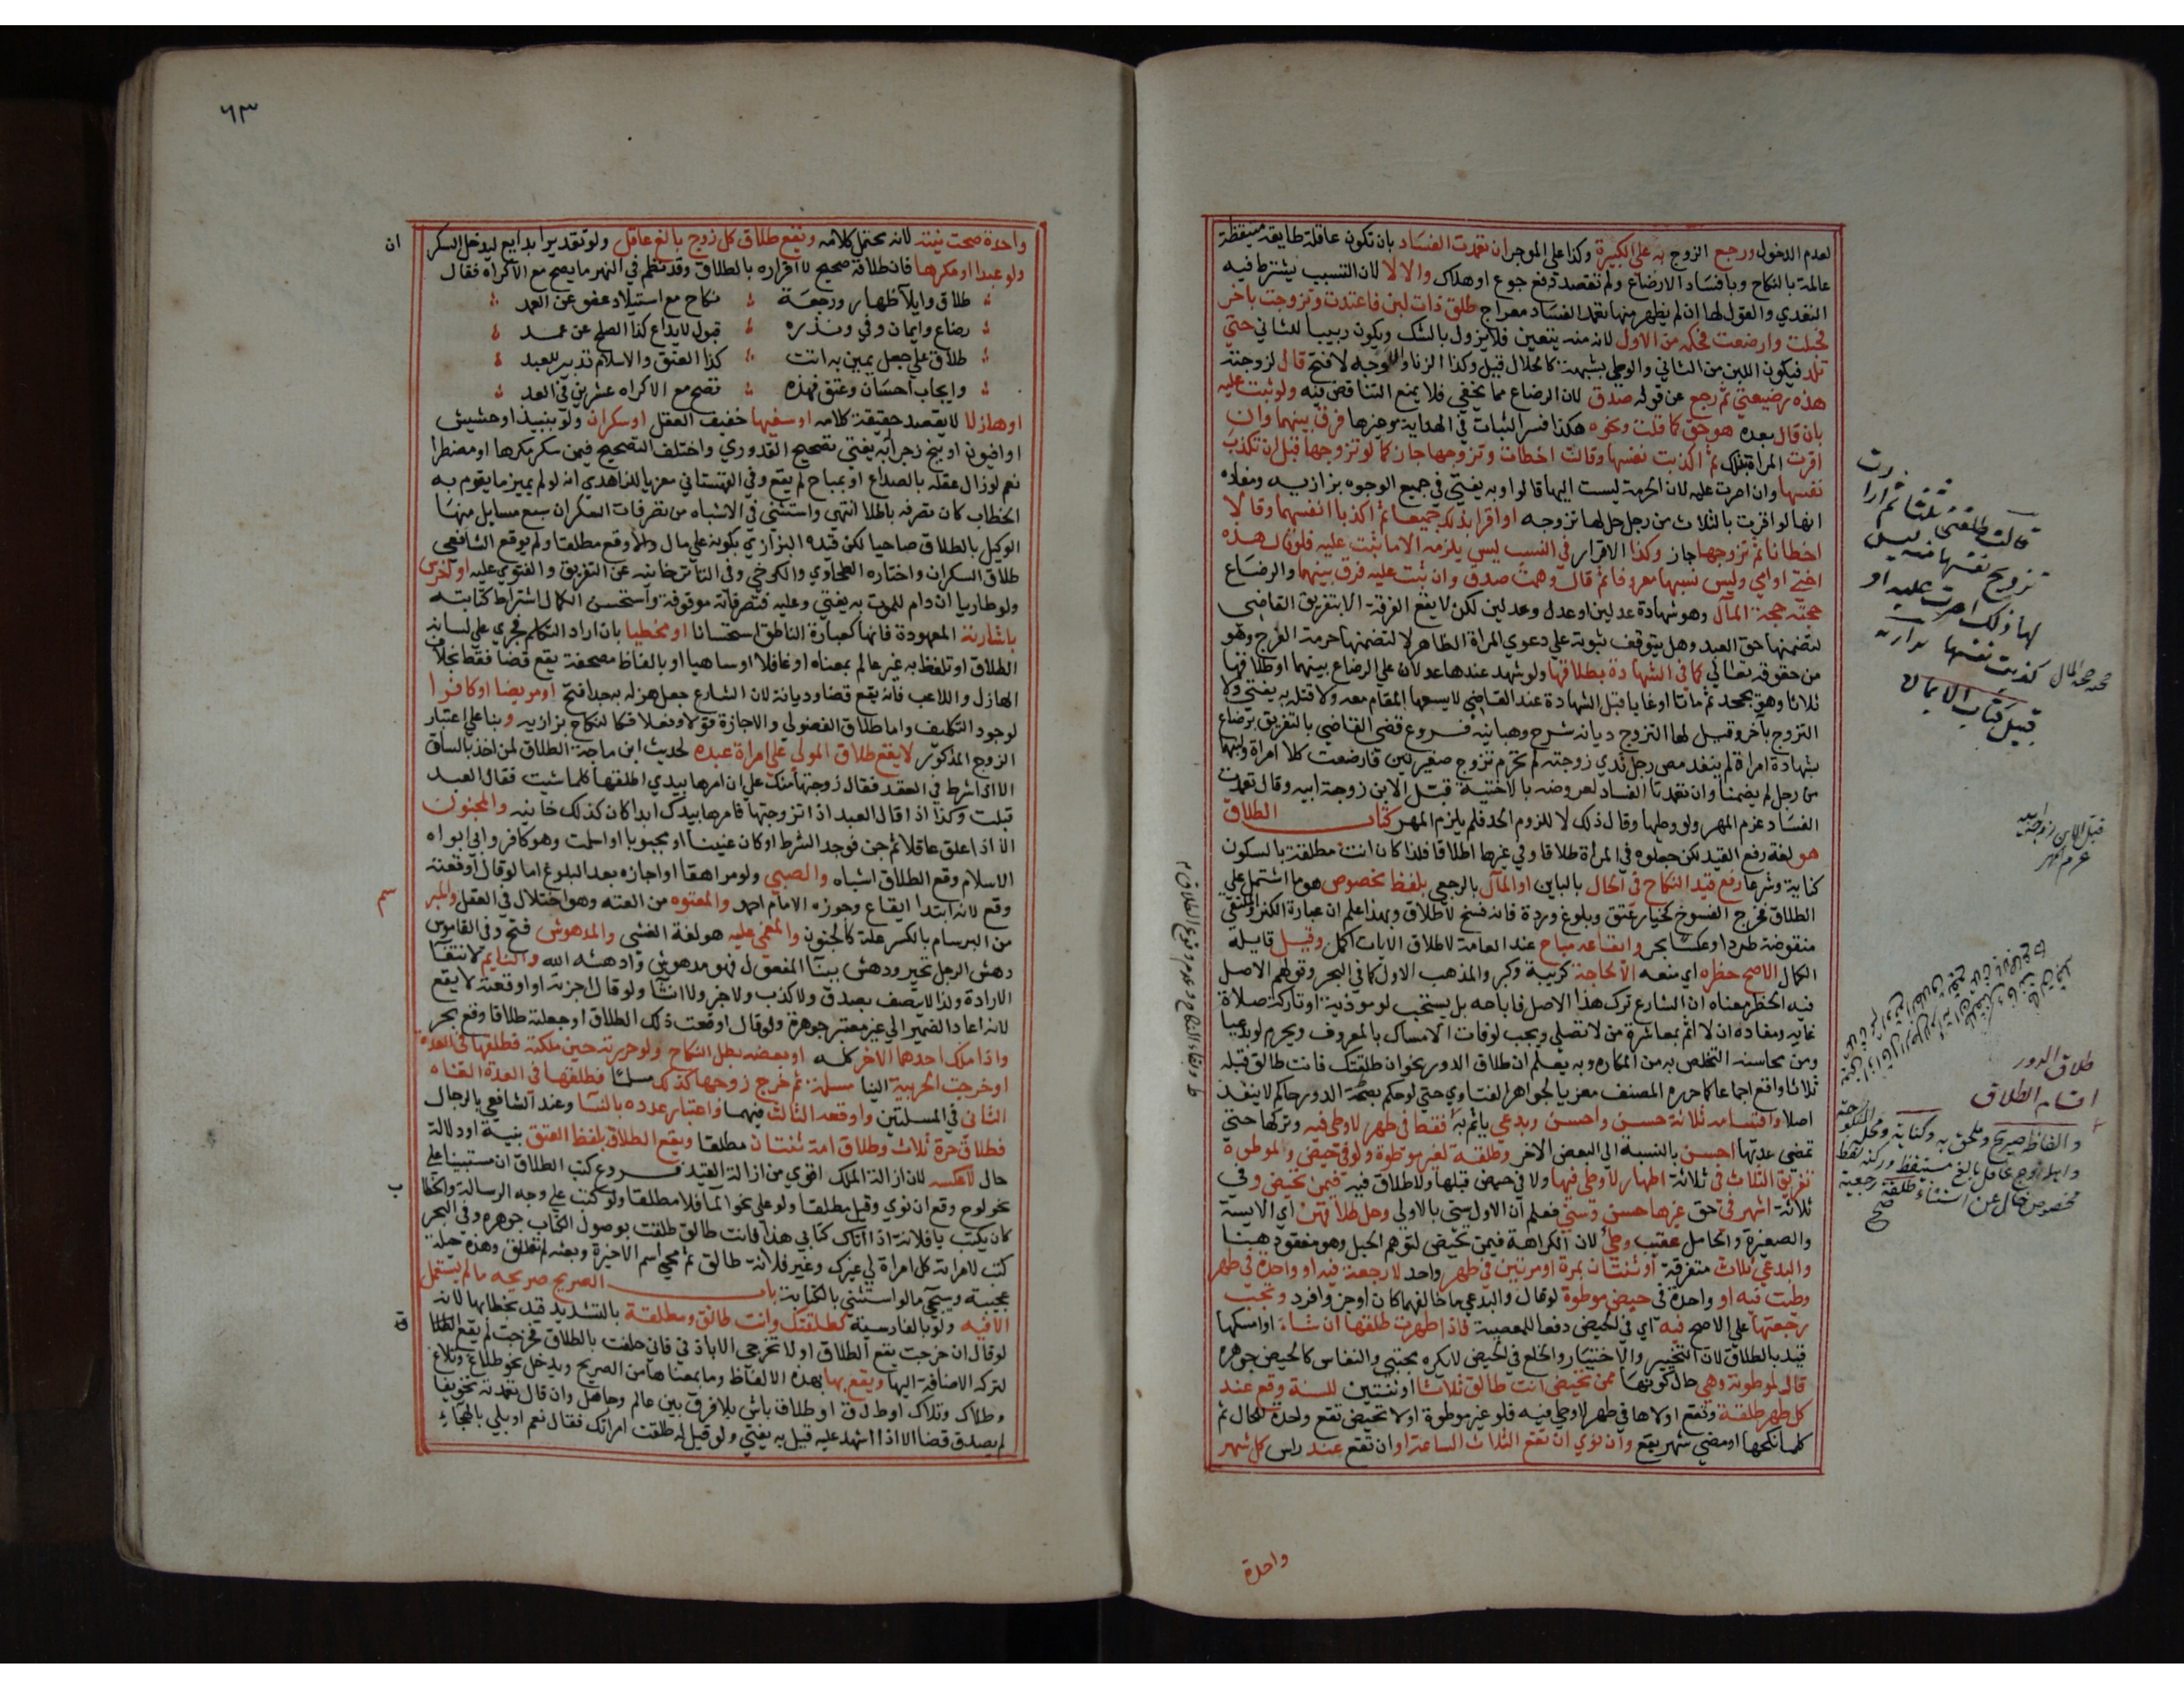 لعدم الدخول ورجع الزوج به على الكبيرة وكذا على الموجر ان تعمدت الفساد بان تكون عاقلة طايعة متيقظة
عالمة بالنكاح وبافساد الارضاع ولم تقصد دفع جوع او هلاك والا لا لان التسبب يشترط فيه
التعدي والقول لها ان لم يظهر منها تعمد الفساد معراج طلق ذات لبن فاعتدت وتزوجت باخر
فحبلت وارضعت فحكمه من الاول لانه منه بيقين فلا يزول بالشك ويكون ربيبا للثاني حتى
تلد فيكون اللبن من الثاني والوطئ بشبهة كالحلال قيل وكذا الزنا والاوجه لا فتح قال لزوجته
هذه رضيعتي ثم رجع عن قوله صدق لان الرضاع مما يخفى فلا يمنع التناقض فيه ولو ثبت عليه
بان قال بعده هو حق كما قلت ونحوه هكذا فسر الثبات في الهداية وغيرها فرق بينهما وان
اقرت المراة بذلك ثم اكذبت نفسها وقالت اخطات وتزوجها جاز كما لو تزوجها قبل ان تكذب
نفسها وان اصرت عليه لان الحرمة ليست اليها قالوا وبه يفتى في جميع الوجوه بزازيه ومفاده
انها لو اقرت بالثلاث من رجل حل لها تزوجه او اقرا بذلك جميعا ثم اكذبا انفسهما وقالا
اخطانا ثم تزوجها جاز وكذا الاقرار في النسب ليس يلزمه الا ما ثبت عليه فلو قال هذه
اختي او امي وليس نسبها معروفا ثم قال وهمت صدق وان ثبت عليه فرق بينهما والرضاع
حجته حجة المال وهو شهادة عدلين او عدل وعدلين لكن لا يقع الفرقة الا بتفريق القاضي
لتضمنها حق العبد وهل يتوقف ثبوته على دعوى المراة الظاهر لا لتضمنها حرمة الفرج وهو
من حقوقه تعالى كما في الشهادة بطلاقها ولو شهد عندها عدلان على الرضاع بينهما او طلاقها
ثلاثا وهو يجحد ثم ماتا او غابا قبل الشهادة عند القاضي لا يسعها المقام معه ولا قتله به يفتى ولا
التزوج بآخر وقيل لها التزوج ديانه شرح وهبانيه فروع قضى القاضي بالتفريق برضاع
بشهادة امراة لم ينفد مص رجل ثدي زوجته لم تحرم تزوج صغيرتين فارضعت كلا امراة ولبنهما
من رجل لم يضمنا وان تعمدتا الفساد لعروضه بالاختيه قبل الابن زوجة ابيه وقال تعمدت
الفساد غرم المهر ولو وطيها وقال ذلك لا للزوم الحد فلم يلزم المهر كتاب الطلاق
هو لغة رفع القيد لكن جعلوه في المراة طلاقا وفي غيرها اطلاقا فلذا كان انت مطلقة بالسكون
كناية وشرعا رفع قيد النكاح في الحال بالباين او المآل بالرجعي بلفظ مخصوص هو ما اشتمل على
الطلاق فخرج الفسوخ كخيار عتق وبلوغ وردة فانه فسخ لا طلاق وبهذا علم ان عبارة الكنز والملتقى
منقوضة طردا وعكسا بحر وايقاعه مباح عند العامة لاطلاق الايات اكمل وقيل قايله
الكمال الاصح حظره اي منعه الا لحاجة كريبة وكبر والمذهب الاول كما في البحر وقولهم الاصل
فيه الحظر معناه ان الشارع ترك هذا الاصل فاباحه بل يستحب لو موذية او تاركة صلاة
غايه ومفاده ان لا اثم بمعاشرة من لا تصلي ويجب لو فات الامساك بالمعروف ويحرم لو بدعيا
ومن محاسنه التخلص به من المكاره وبه يعلم ان طلاق الدور نحو ان طلقتك فانت طالق قبله
ثلاثا واقع اجماعا كما حرره المصنف معزيا لجواهر الفتاوي حتى لو حكم بصحة الدور حاكم لا ينفذ
اصلا واقسامه ثلاثة حسن واحسن وبدعي ياثم به فقط في طهر لا وطئ فيه وتركها حتى
تمضي عدتها احسن بالنسبة الى البعض الاخر وطلقة لغير موطوة ولو في حيض ولموطوة
تفريق الثلاث في ثلاثة اطهار لا وطئ فيها ولا في حيض قبلها ولا طلاق فيه فيمن تحيض وفي
ثلاثة اشهر في حق غيرها حسن وسني فعلم ان الاول سني بالاولى وحل طلاقهن اي الايسة
والصغيرة والحامل عقيب وطئ لان الكراهة فيمن تحيض لتوهم الحبل وهو مفقود هنا
والبدعي ثلاث متفرقة او ثنتان بمرة او مرتين في طهر واحد لا رجعة فيه او واحدة في طهر
وطئت فيه او واحدة في حيض موطوة لو قال والبدعي ما خالفهما كان اوجز وافرد وتجب
رجعتها على الاصح فيه اي في الحيض دفعا للمعصية فاذا طهرت طلقها ان شاء او امسكها
قيد بالطلاق لان التخيير والاختيار والخلع في الحيض لا يكره مجتبى والنفاس كالحيض جوهره
قال لموطوته وهي حال كونها ممن تحيض انت طالق ثلاثا او ثنتين للسنة وقع عند
كل طهر طلقة وتقع اولاها في طهر لا وطئ فيه فلو غير موطوة او لا تحيض تقع واحدة للحال ثم
كلما نكحها او مضى شهر يقع وان نوى ان تقع الثلاث الساعة او ان تقع عند راس كل شهر
واحدة
قالت طلقني ثلثا ثم ارادت
تزويج نفسها منه ليس
لها ذلك اصرت عليه او
كذبت نفسها بزازيه
قبيل كتاب الايمان
قبل الابن زوجة ابيه
غرم المهر
طلاق الدور
اقسام الطلاق
٦٣
واحدة صحت نيته لانه محتمل كلامه ويقع طلاق كل زوج بالغ عاقل ولو تقديرا بدايع ليدخل السكران
ولو عبدا او مكرها فان طلاقه صحيح لا اقراره بالطلاق وقد نظم في النهر ما يصح مع الاكراه فقال
طلاق وايلآ ظهار ورجعة نكاح مع استيلاد عفو عن العمد
رضاع وايمان وفي ونذره قبول لايداع كذا الصلح عن عمد
طلاق على جعل يمين به اتت كذا العتق والاسلام تدبير للعبد
وايجاب احسان وعتق فهذه تصح مع الاكراه عشرين في العد
او هازلا لا يقصد حقيقة كلامه او سفيها خفيف العقل او سكران ولو بنبيذ او حشيش
او افيون او بنج زجرا به يفتى تصحيح القدوري واختلف التصحيح فيمن سكر مكرها او مضطرا
نعم لو زال عقله بالصداع او بمباح لم يقع وفي القهستاني معزيا للزاهدي انه لو لم يميز ما يقوم به
الخطاب كان تصرفه باطلا انتهى واستثنى في الاشباه من تصرفات السكران سبع مسايل منها
الوكيل بالطلاق صاحيا لكن قيده البزازي بكونه على مال والا وقع مطلقا ولم يوقع الشافعي
طلاق السكران واختاره الطحاوي والكرخي وفي التاترخانيه عن التفريق والفتوى عليه او اخرس
ولو طاريا ان دام للموت به يفتى وعليه فتصرفاته موقوفة واستحسن الكمال اشتراط كتابته
باشارته المعهودة فانها كعبارة الناطق استحسانا او مخطيا بان اراد التكلم فجرى على لسانه
الطلاق او تلفظ به غير عالم بمعناه او غافلا او ساهيا او بالفاظ مصحفة يقع قضا فقط بخلاف
الهازل واللاعب فانه يقع قضا وديانة لان الشارع جعل هزله به جدا فتح او مريضا او كافرا
لوجود التكليف واما طلاق الفضولي والاجازة قولا وفعلا فكالنكاح بزازيه وبنا على اعتبار
الزوج المذكور لا يقع طلاق المولى على امراة عبده لحديث ابن ماجة الطلاق لمن اخذ بالساق
الا اذا شرط في العقد فقال زوجتها منك على ان امرها بيدي اطلقها كلما شيت فقال العبد
قبلت وكذا اذا قال العبد اذا تزوجتها فامرها بيدك ابدا كان كذلك خانيه والمجنون
الا اذا علق عاقلا ثم جن فوجد الشرط او كان عنينا او مجبوبا او اسلمت وهو كافر وابى ابواه
الاسلام وقع الطلاق اشباه والصبي ولو مراهقا او اجازه بعد البلوغ اما لو قال اوقعته
وقع لانه ابتدا ايقاع وجوزه الامام احمد والمعتوه من العته وهو اختلال في العقل والمبرسم
من البرسام بالكسر علة كالجنون والمغمى عليه هو لغة الغشى والمدهوش فتح وفي القاموس
دهش الرجل تحير ودهش ببنا المفعول فهو مدهوش وادهشه الله والنايم لانتفا
الارادة ولذا لا يتصف بصدق ولا كذب ولا خبر ولا انشا ولو قال اجزته او اوقعته لا يقع
لانه اعاد الضمير الى غير معتبر جوهرة ولو قال اوقعت ذلك الطلاق او جعلته طلاقا وقع بحر
واذا ملك احدهما الاخر كله او بعضه بطل النكاح ولو حررته حين ملكته فطلقها في العدة
او خرجت الحربية الينا مسلمة ثم خرج زوجها كذلك مسلما فطلقها في العدة الغاه
الثاني في المسلتين واوقعه الثالث فيهما واعتبار عدده بالنسا وعند الشافعي بالرجال
فطلاق حرة ثلاث وطلاق امة ثنتان مطلقا ويقع الطلاق بلفظ العتق بنية او دلالة
حال لا عكسه لان ازالة الملك اقوى من ازالة القيد فروع كتب الطلاق ان مستبينا على
نحو لوح وقع ان نوى وقيل مطلقا ولو على نحو المآ فلا مطلقا ولو كتب على وجه الرسالة والخطاب
كان يكتب يا فلانة اذا اتاك كتابي هذا فانت طالق طلقت بوصول الكتاب جوهره وفي البحر
كتب لامراته كل امراة لي غيرك وغير فلانة طالق ثم محى اسم الاخيرة وبعثه لم تطلق وهذه حيلة
عجيبة وسيجي ما لو استثنى بالكتابة باب الصريح صريحه ما لم يستعمل
الا فيه ولو بالفارسية كطلقتك وانت طالق ومطلقة بالتشديد قيد بخطابها لانه
لو قال ان خرجت يقع الطلاق او لا تخرجي الا باذني فاني حلفت بالطلاق فخرجت لم يقع الطلاق
لتركه الاضافة اليها ويقع بها بهذه الالفاظ وما بمعناها من الصريح ويدخل نحو طلاغ وتلاغ
وطلاك وتلاك او ط ل ق او طلاق باش بلا فرق بين عالم وجاهل وان قال تعمدته تخويفا
لم يصدق قضا الا اذا اشهد عليه قبله به يفتى ولو قيل له طلقت امراتك فقال نعم او بلى بالهجاء